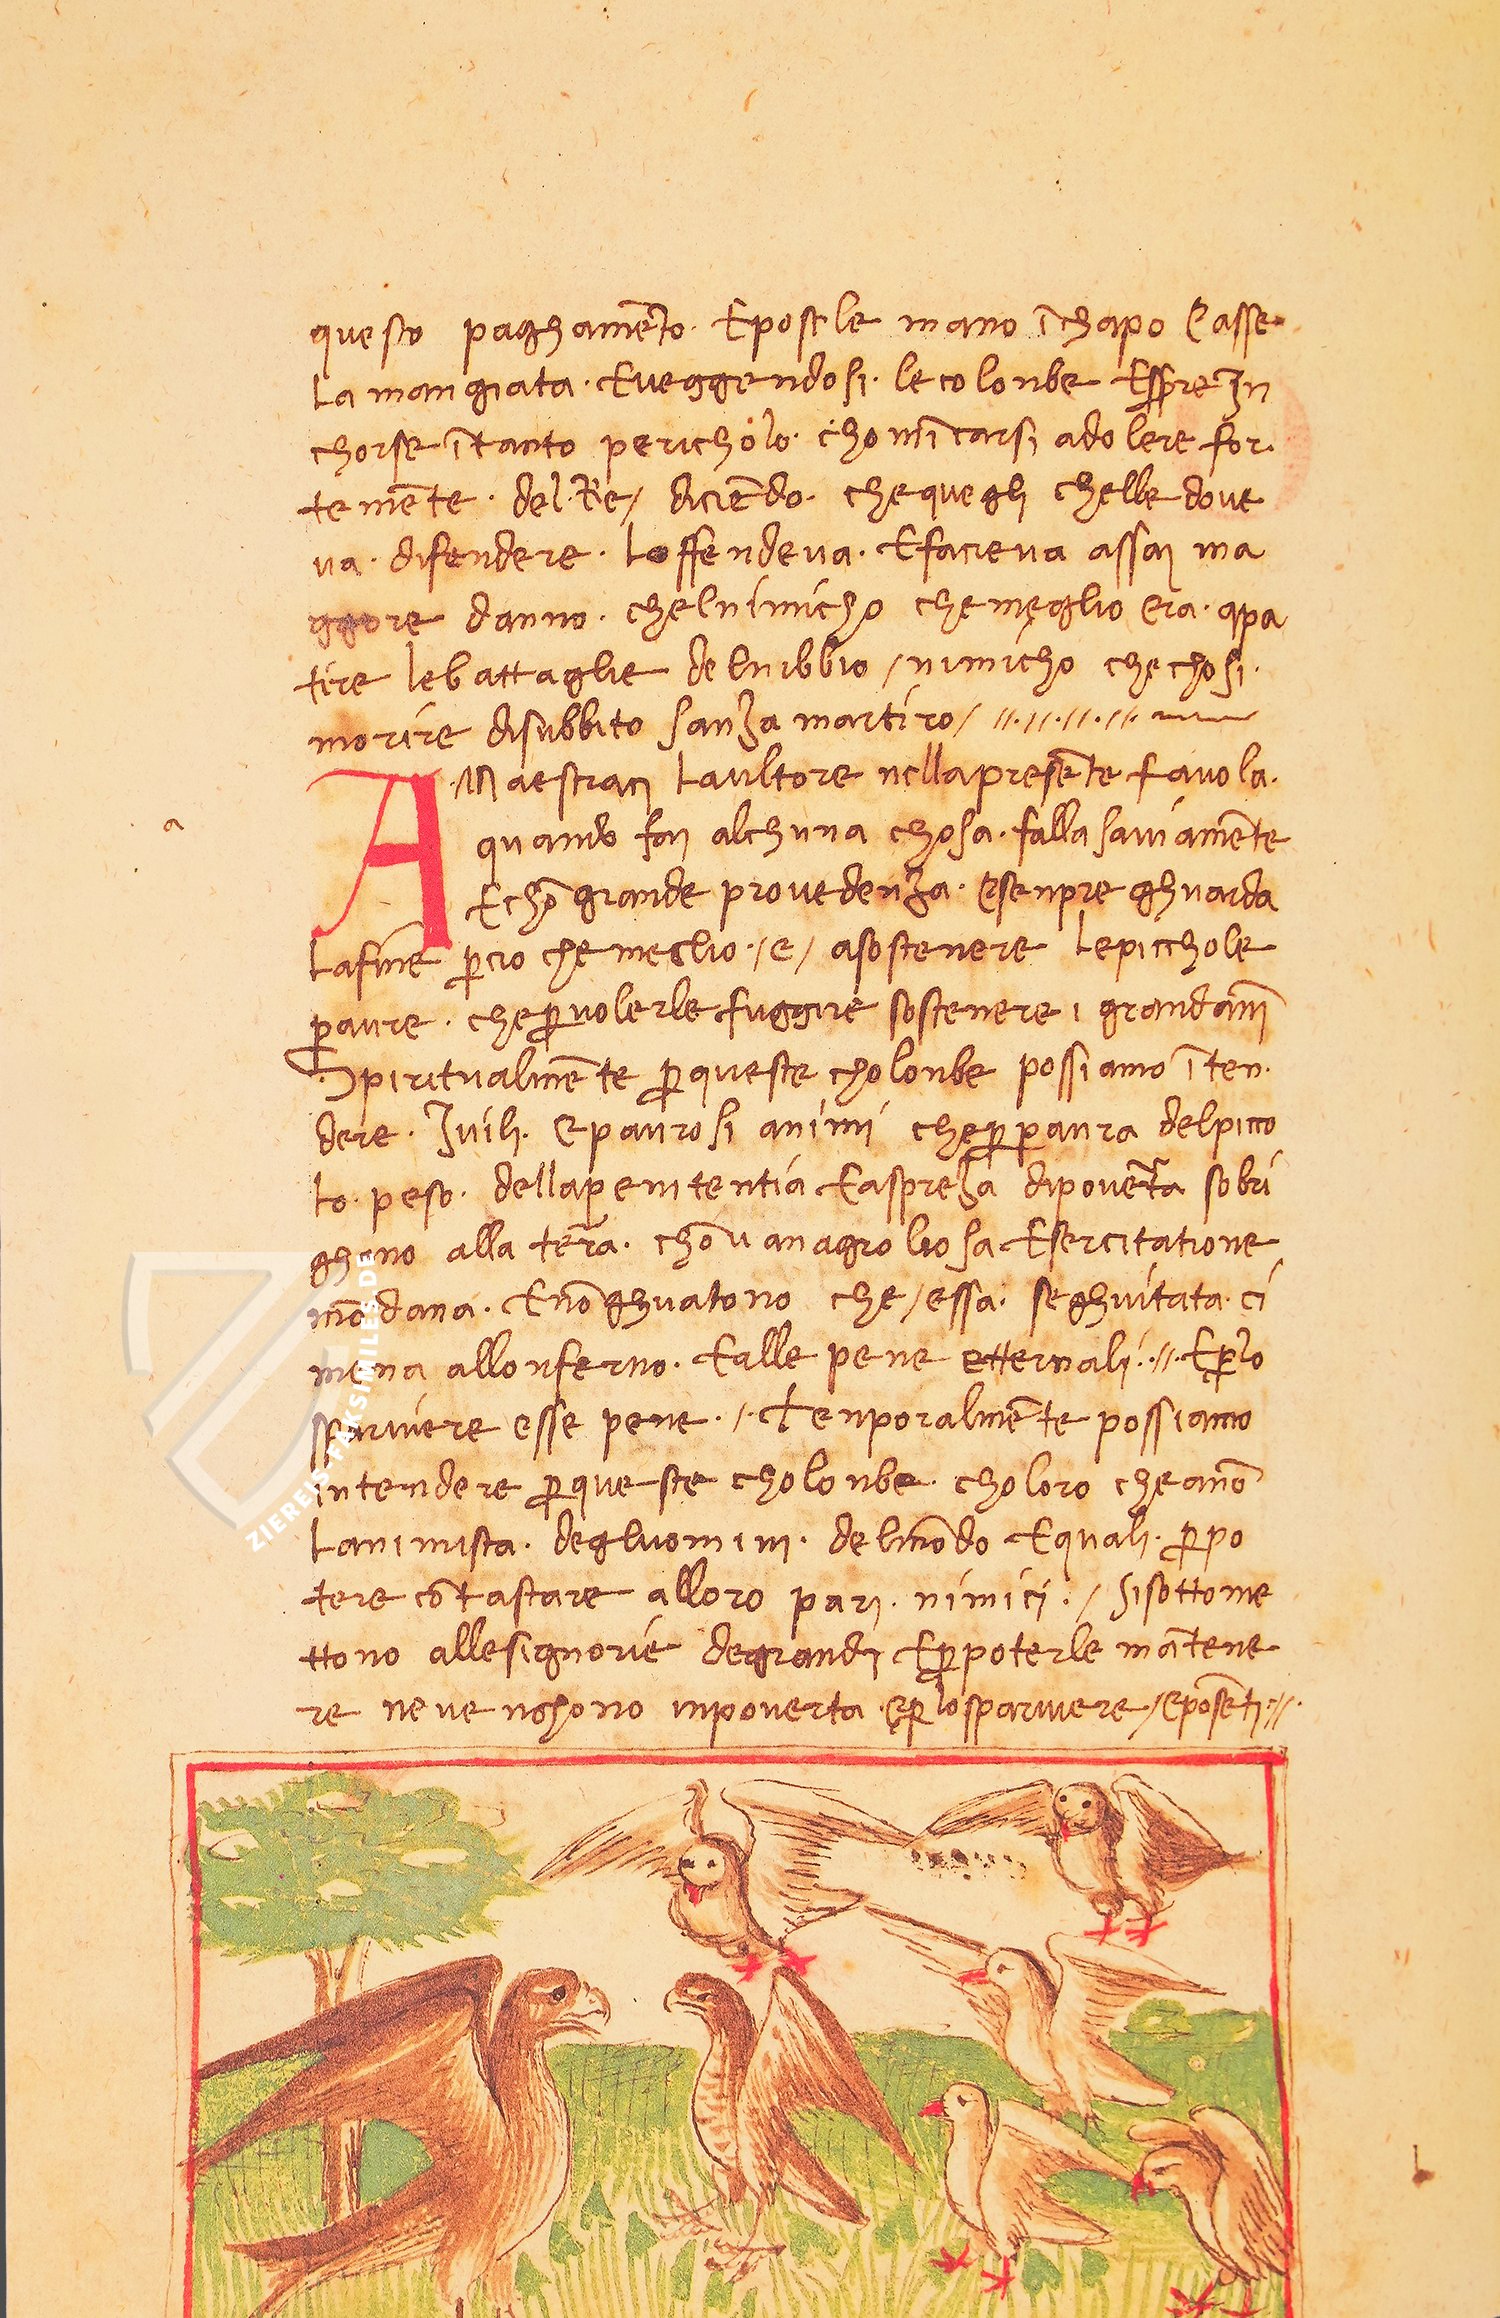 questo paghame͂to · E posele mano i͂ chapo Easse
la mangiata · E veggendosi · le colonbe Essere in
chorse i͂ tanto pericholo · chomi͂carsi a dolere for·
teme͂te · del · Re / dicie͂do · che quegli chelle dove
va · difendere · loffendeva · E facieva assai ma
ggore danno · chel nimicho che meglio era · a pa
tire le battaglie del nibbio / nimicho che chosi ·
morire di subbito sanza martiro / //·//·//·//·
AMaestraci laultore nella prese͂te favola ·
quando fai alchuna chosa · falla saviame͂te
E cho͂ grande provedenza · E senpre ghuarda
la fine p̱cio che meglio · /e/ a sostenere le picchole
paure · che p̱ volerle fuggire sostenere i grandi dani͂
Spiritualme͂te p̱ queste cholonbe possiamo i͂ten·
dere · I vili · E paurosi animi che p̱ paura del picco
lo · peso · della penitentia E aspreza di poverta sobri
ghano alla terra · cho͂ vanagroliosa Esercitatione
mo͂dana · E no͂ ghuatono che / essa · seghuitata · ci
mena allonferno · E alle pene etternali · // · E p̱ lo
sparviere esse pene · / · Tenporalme͂te possiamo
intendere p̱ queste cholonbe · choloro che ano͂
lanimista · degluomini · del mo͂do E quali · p̱ po
tere co͂tastare alloro pari · nimici · / si sottome
ttono alle signorie de grandi E p̱ poterle ma͂tene
re ne venghono inpoverta · E p̱ lo sparviere / E pose͂ti · //·
a
ZIEREIS-FAKSIMILES.DE